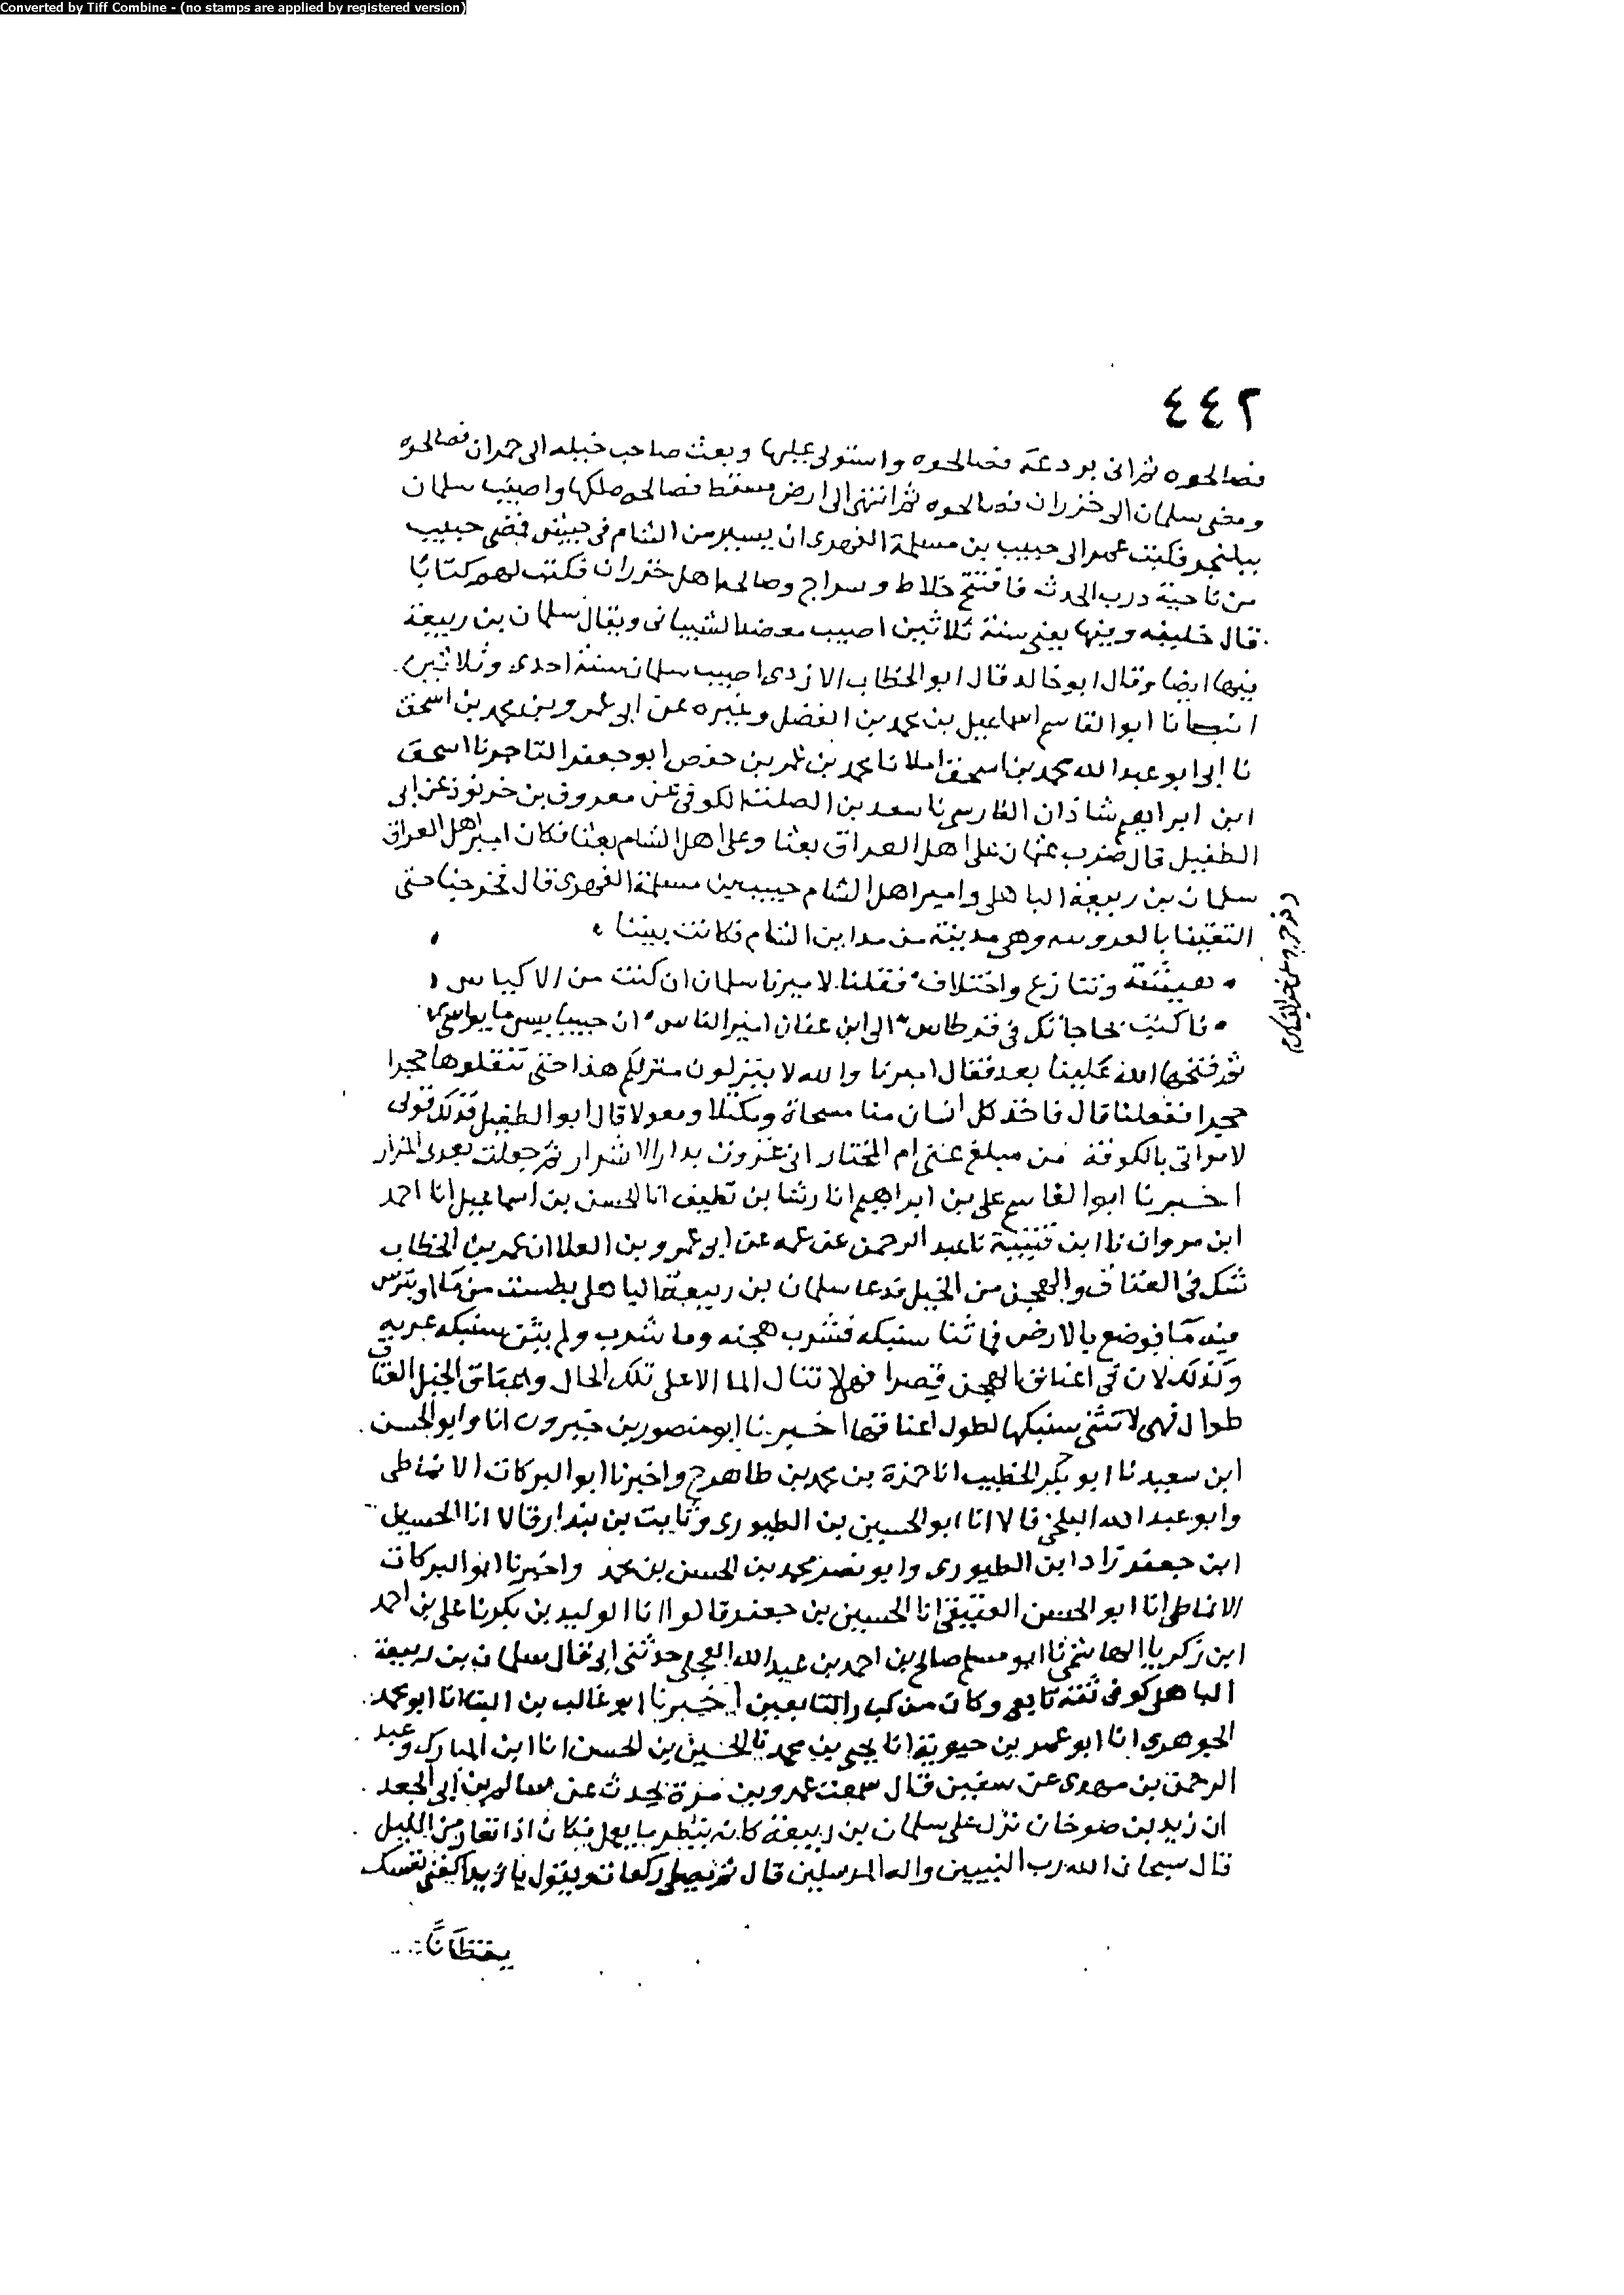 Converted by Tiff Combine - (no stamps are applied by registered version)
٤٤٢
فصالحوه ثم اتى بردعة فصالحوه واستولى عليها وبعث صاحب خيله الى جرزان فصالحوه
ومضى سلمان الى خيزان فصالحوه ثم انتهى الى ارض مسقط فصالحه ملكها واصيب سلمان
ببلنجر فكتب عمر الى حبيب بن مسلمة الفهرى ان يسير من الشام فى جيش فمضى حبيب
من ناحية درب الحدث فافتتح خلاط وسراج وصالحه اهل خزران فكتب لهم كتابا
قال خليفه وفيها يعنى سنة ثلاثين اصيب معضد الشيبانى ويقال سلمان بن ربيعة
فيها ايضا وقال ابو خالد قال ابو الخطاب الازدى اصيب سلمان سنة احدى وثلاثين
انبانا ابو القاسم اسماعيل بن محمد بن الفضل وغيره عن ابى عمرو بن محمد بن اسحق
نا ابى ابو عبد الله محمد بن اسحق املا نا محمد بن عمر بن حفص ابو جعفر التاجر نا اسحق
ابن ابراهيم شاذان الفارسى نا سعد بن الصلت الكوفى عن معروف بن خربوذ عن ابى
الطفيل قال ضرب عثمان على اهل العراق بعثا وعلى اهل الشام بعثا فكان امير اهل العراق
سلمان بن ربيعة الباهلى وامير اهل الشام حبيب بن مسلمة الفهرى قال فخرجنا حتى
التقينا بالعدوسه وهى مدينة من مداين الشام فكانت بيننا
هيشة وتنازع واختلاف فقلنا لاميرنا سلمان ان كنت من الاكياس
فاكتب بحاجاتك فى قرطاس الى ابن عفان امير الناس ان حبيبا بيس ما يواسى
ثم فتحها الله علينا بعد فقال اميرنا والله لا يتزلون منزلكم هذا حتى تنقلوها حجرا
حجرا ففعلنا قال فاخذ كل انسان منا مسحاة ومكتلا ومعولا قال ابو الطفيل فذلك قولى
لامراتى بالكوفة من مبلغ عنى ام المختار انى غزوت بدار الاشرار ثم جعلت بعدى المزار
اخبرنا ابو القاسم على بن ابراهيم انا رشا بن نظيف انا الحسن بن اسماعيل انا احمد
ابن مروان نا ابن قتيبة نا عبد الرحمن عن عمه عن ابى عمرو بن العلا ان عمر بن الخطاب
شك فى العتاق والهجن من الخيل فدعا سلمان بن ربيعة الباهلى بطست من ما او بترس
فيه ما فوضع بالارض فما ثنا سنبكه فشرب هجنه وما شرب ولم يثن سنبكه عربيه
وذلك لان فى اعناق الهجن قصرا فهى لا تنال الما الا على تلك الحال واعناق الخيل العتاق
طوال فهى لا تثنى سنبكها لطول اعناقها اخبرنا ابو منصور بن خيرون انا وابو الحسن
ابن سعيد نا ابو بكر الخطيب انا حمزة بن محمد بن طاهر ح واخبرنا ابو البركات الانماطى
وابو عبد الله البلخى قالا انا ابو الحسين بن الطيورى وثابت بن بندار قالا انا الحسين
ابن جعفر زاد ابن الطيورى وابو نصر محمد بن الحسن بن محمد واخبرنا ابو البركات
الانماطى انا ابو الحسن العتيقى انا الحسين بن جعفر قالوا انا الوليد بن بكر نا على بن احمد
ابن زكريا الهاشمى نا ابو مسلم صالح بن احمد بن عبد الله العجلى حدثنى ابى قال سلمان بن ربيعة
الباهلى كوفى ثقة تابعى وكان من كبار التابعين اخبرنا ابو غالب بن البنا انا ابو محمد
الجوهرى انا ابو عمر بن حيوية انا يحيى بن محمد نا الحسين بن الحسن انا ابن المبارك وعبد
الرحمن بن مهدى عن سفين قال سمعت عمرو بن مرة يحدث عن سالم بن ابى الجعد
ان زيد بن صوخان نزل على سلمان بن ربيعة كانه ينظر ما يعمل فكان اذا تعار من الليل
قال سبحان الله رب النبيين واله المرسلين قال ثم يصلى ركعات ويقول يا زيد اكفنى نفسك
يقظانا